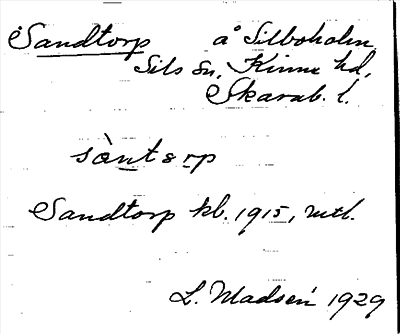 Sandtorp å Silboholm
Sils sn, Kinne hd,
Skarab. l.
sàntərp
Sandtorp kl. 1915, utl.
L. Madsén 1929